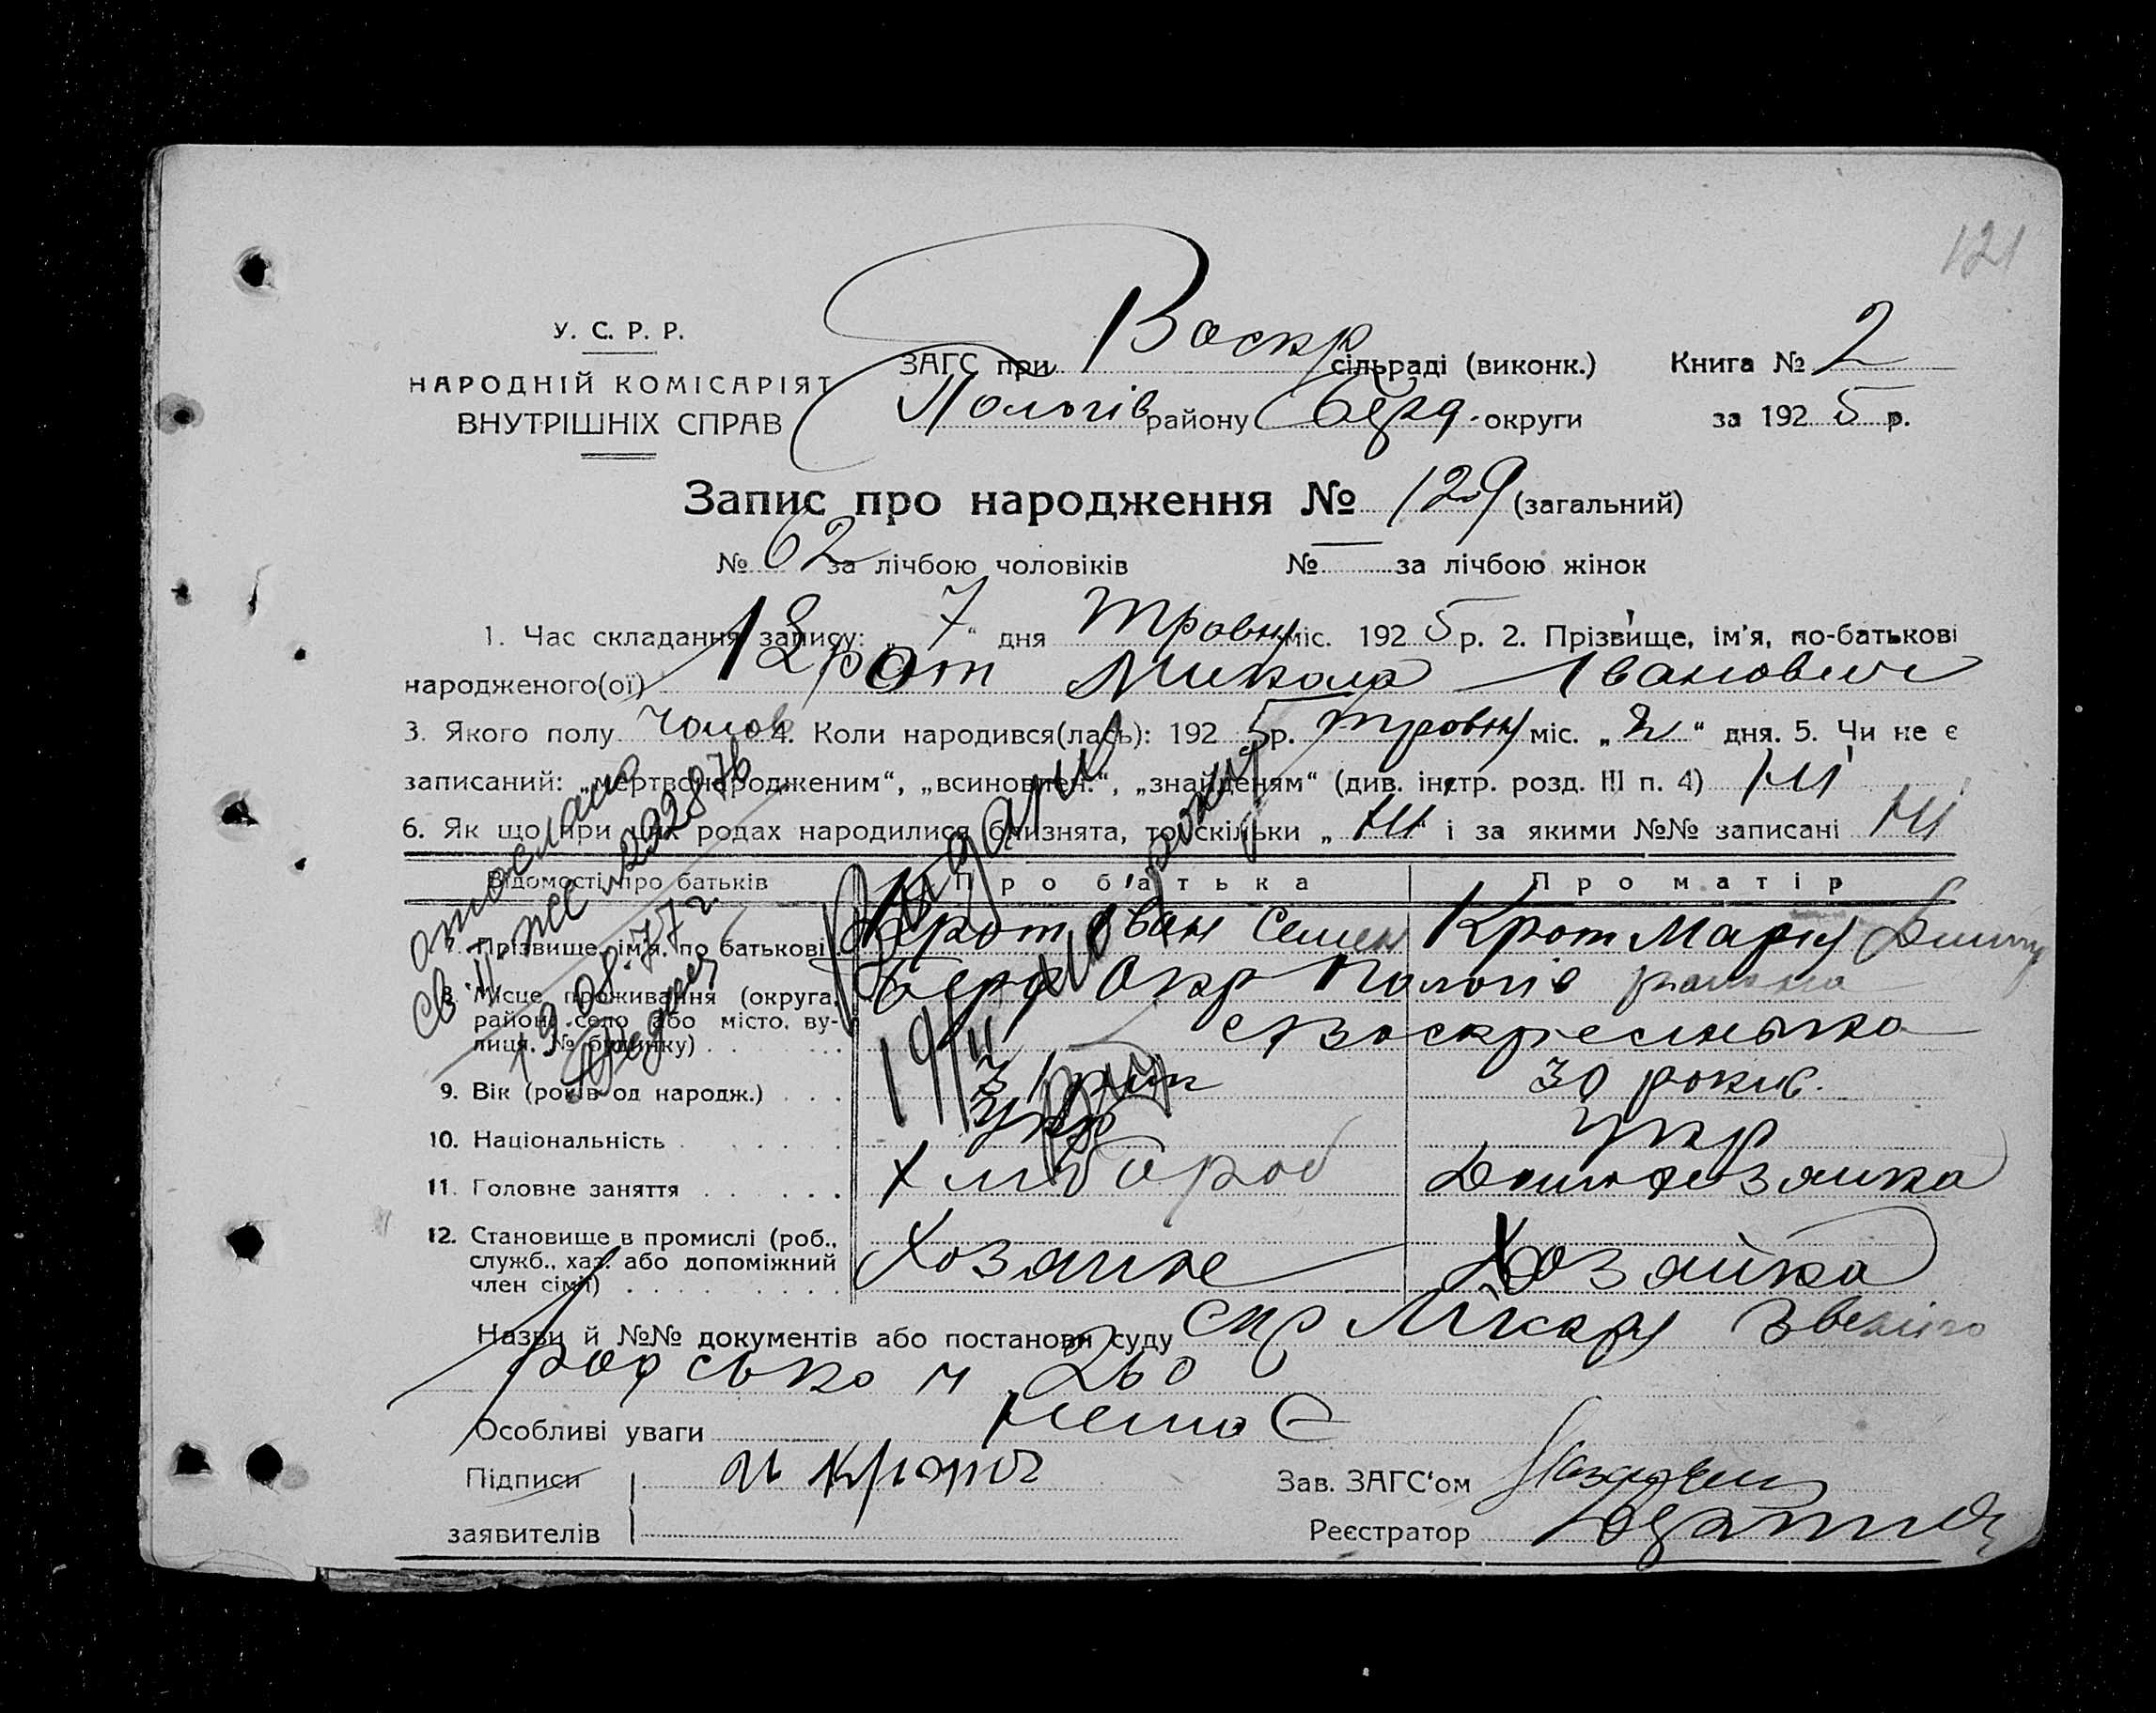 121
У. С. Р. Р.
НАРОДНІЙ КОМІСАРІЯТ
ВНУТРІШНІХ СПРАВ
ЗАГС при Воскр сільраді (виконк.) Книга № 2
Пологів району Берд. округи за 1925 р.
Запис про народження № 129 (загальний)
№ 62 за лічбою чоловіків № — за лічбою жінок
1. Час складання запису: „7“ дня Травня міс. 1925 р. 2. Прізвище, ім'я, по-батькові
народженого(ої) Крот Микола Іванович
3. Якого полу Чолов 4. Коли народився(лась): 1925 р. травня міс. „2“ дня. 5. Чи не є
записаний: „мертвонародженим“, „всиновлен.“, „знайденям“ (див. інстр. розд. III п. 4) Ні
6. Як що при цих родах народилися близнята, то скільки „Ні“ і за якими №№ записані Ні
Відомості про батьків Про батька Про матір
7. Прізвище, ім'я, по батькові Крот Іван Семен Крот Марія
8. Місце проживання (округа, район, село або місто, вулиця, № будинку) Берд Окр Пологів района
с Воскресенька
9. Вік (років од народж.) 31 рік 30 років.
10. Національність Укр Укр
11. Головне заняття Хлібороб Домохозяйка
12. Становище в промислі (роб., служб., хаз. або допоміжний член сім'ї) Хозяине Хозяйка
Назви й №№ документів або постанови суду спр Лікаря Звениго
родсько 260
Особливі уваги Нема є
Підписи
заявителів
Зав. ЗАГС'ом
Реєстратор
отослано
св. ЖС № 232876
19.08.77 г.
Видани
19/II